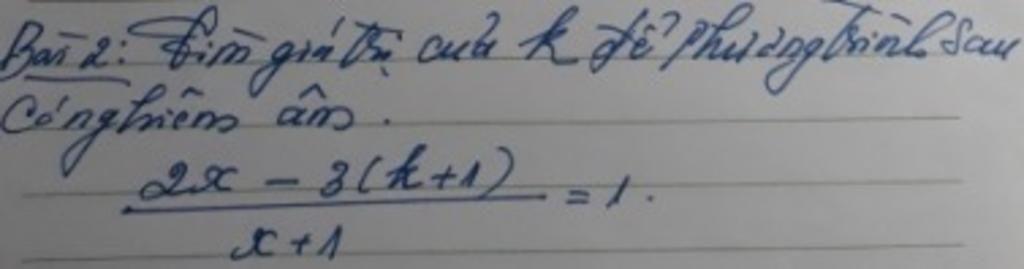 Bài 2: Tìm giá trị của k để phương trình sau
có nghiệm âm.
2x - 3(k+1)
= 1.
x + 1